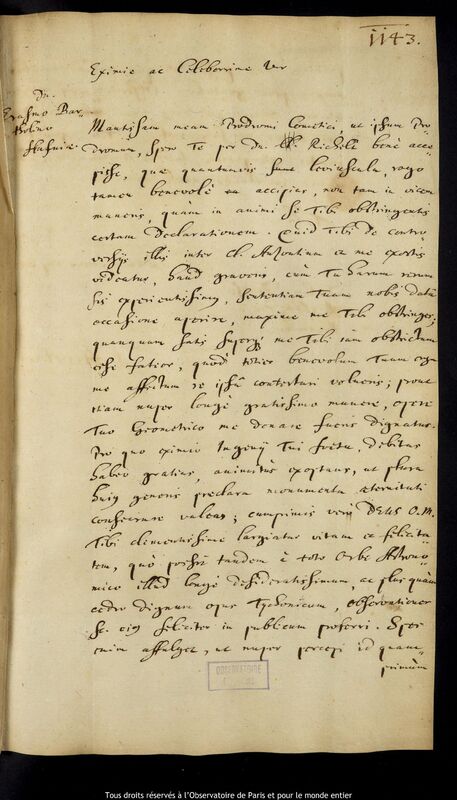 1143.
Eximie ac Celeberrime Vir
Dn.
Erasmo Bar-
tholino
Hafniæ
Mantissam meam Prodromi Cometici ut ipsum Pro-
dromum, spero Te per Dn. Richelt benè acce-
pisse, quæ quantumvis sunt leviuscula, rogo
tamen benevolè ea accipias, non tam in vicem
muneris, quàm in animi se Tibi obstringentis
certam declarationem. Quid Tibi de contro-
versijs illis inter Cl. Auzoutium ac me exortis
videatur, haud graveris, cum Tu harum rerum
sis experientissimus, sententiam Tuam nobis datâ
occasione aperire, maximè me Tibi obstringes;
quanquam satis superq; me Tibi iam obstrictum
esse fateor, quod toties benevolum Tuum erga
me affectum re ipsâ contestari volueris; prout
etiam nuper longè gratissimo munere, opere
Tuo Geometrico me donare fueris dignatus.
Pro quo eximio Ingenij Tui foetu, debitas
habeo gratias, animitùs exoptans, ut plura
huius generis præclara monumenta æternitati
consecrare valeas; cumprimis verò DEUS O. M.
Tibi clementissimè largiatur vitam ac felicita-
tem, quò possit tandem à toto Orbe Astrono-
mico illud longè desideratissimum, ac plus quàm
cedro dignum opus Tychonicum, observationes
sc. eius feliciter in publicum proferri. Spes
enim affulget, ut nuper percepi id quam-
primùm
OBSERVATOIRE
Tous droits réservés à l'Observatoire de Paris et pour le monde entier